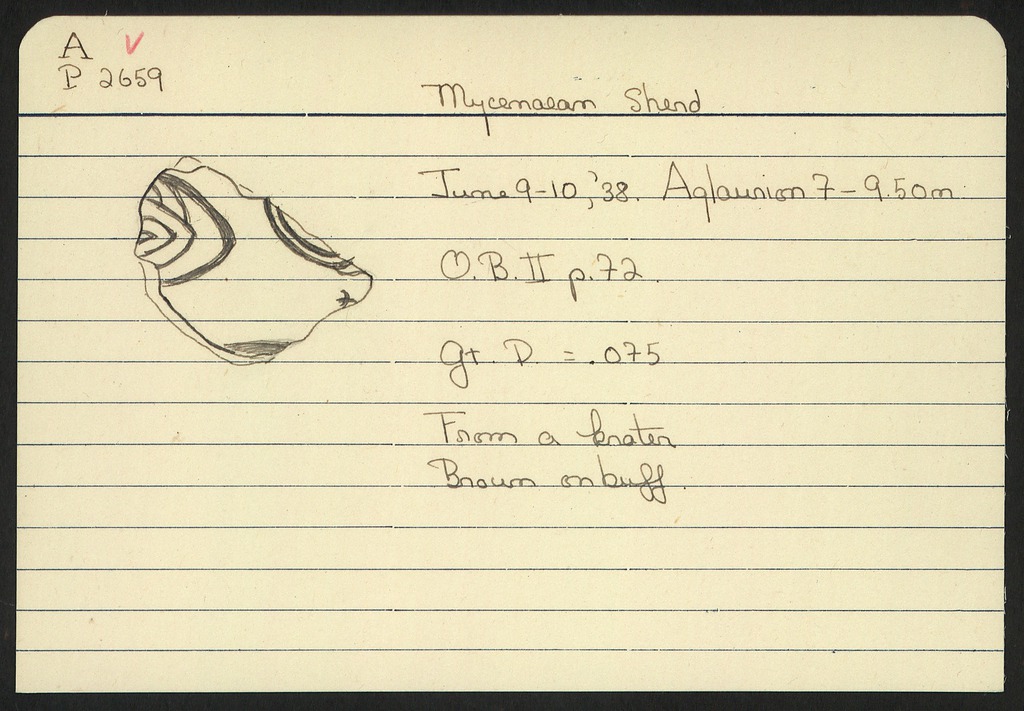 A V
P 2659
Mycenaean Sherd
June 9-10, '38. Aglaurion 7-9.50m
O.B. II p.72
gt. D. = .075
From a krater
Brown on buff.